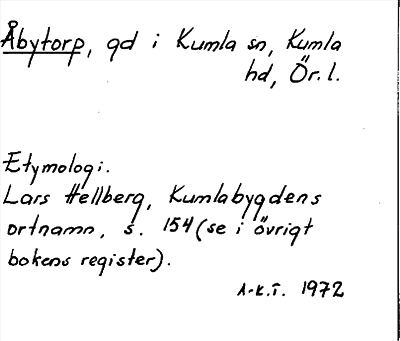 Åbytorp, gd i Kumla sn, Kumla
hd, Ör. l.
Etymologi.
Lars Hellberg, Kumlabygdens
ortnamn, s. 154 (se i övrigt
bokens register).
A-K.T. 1972